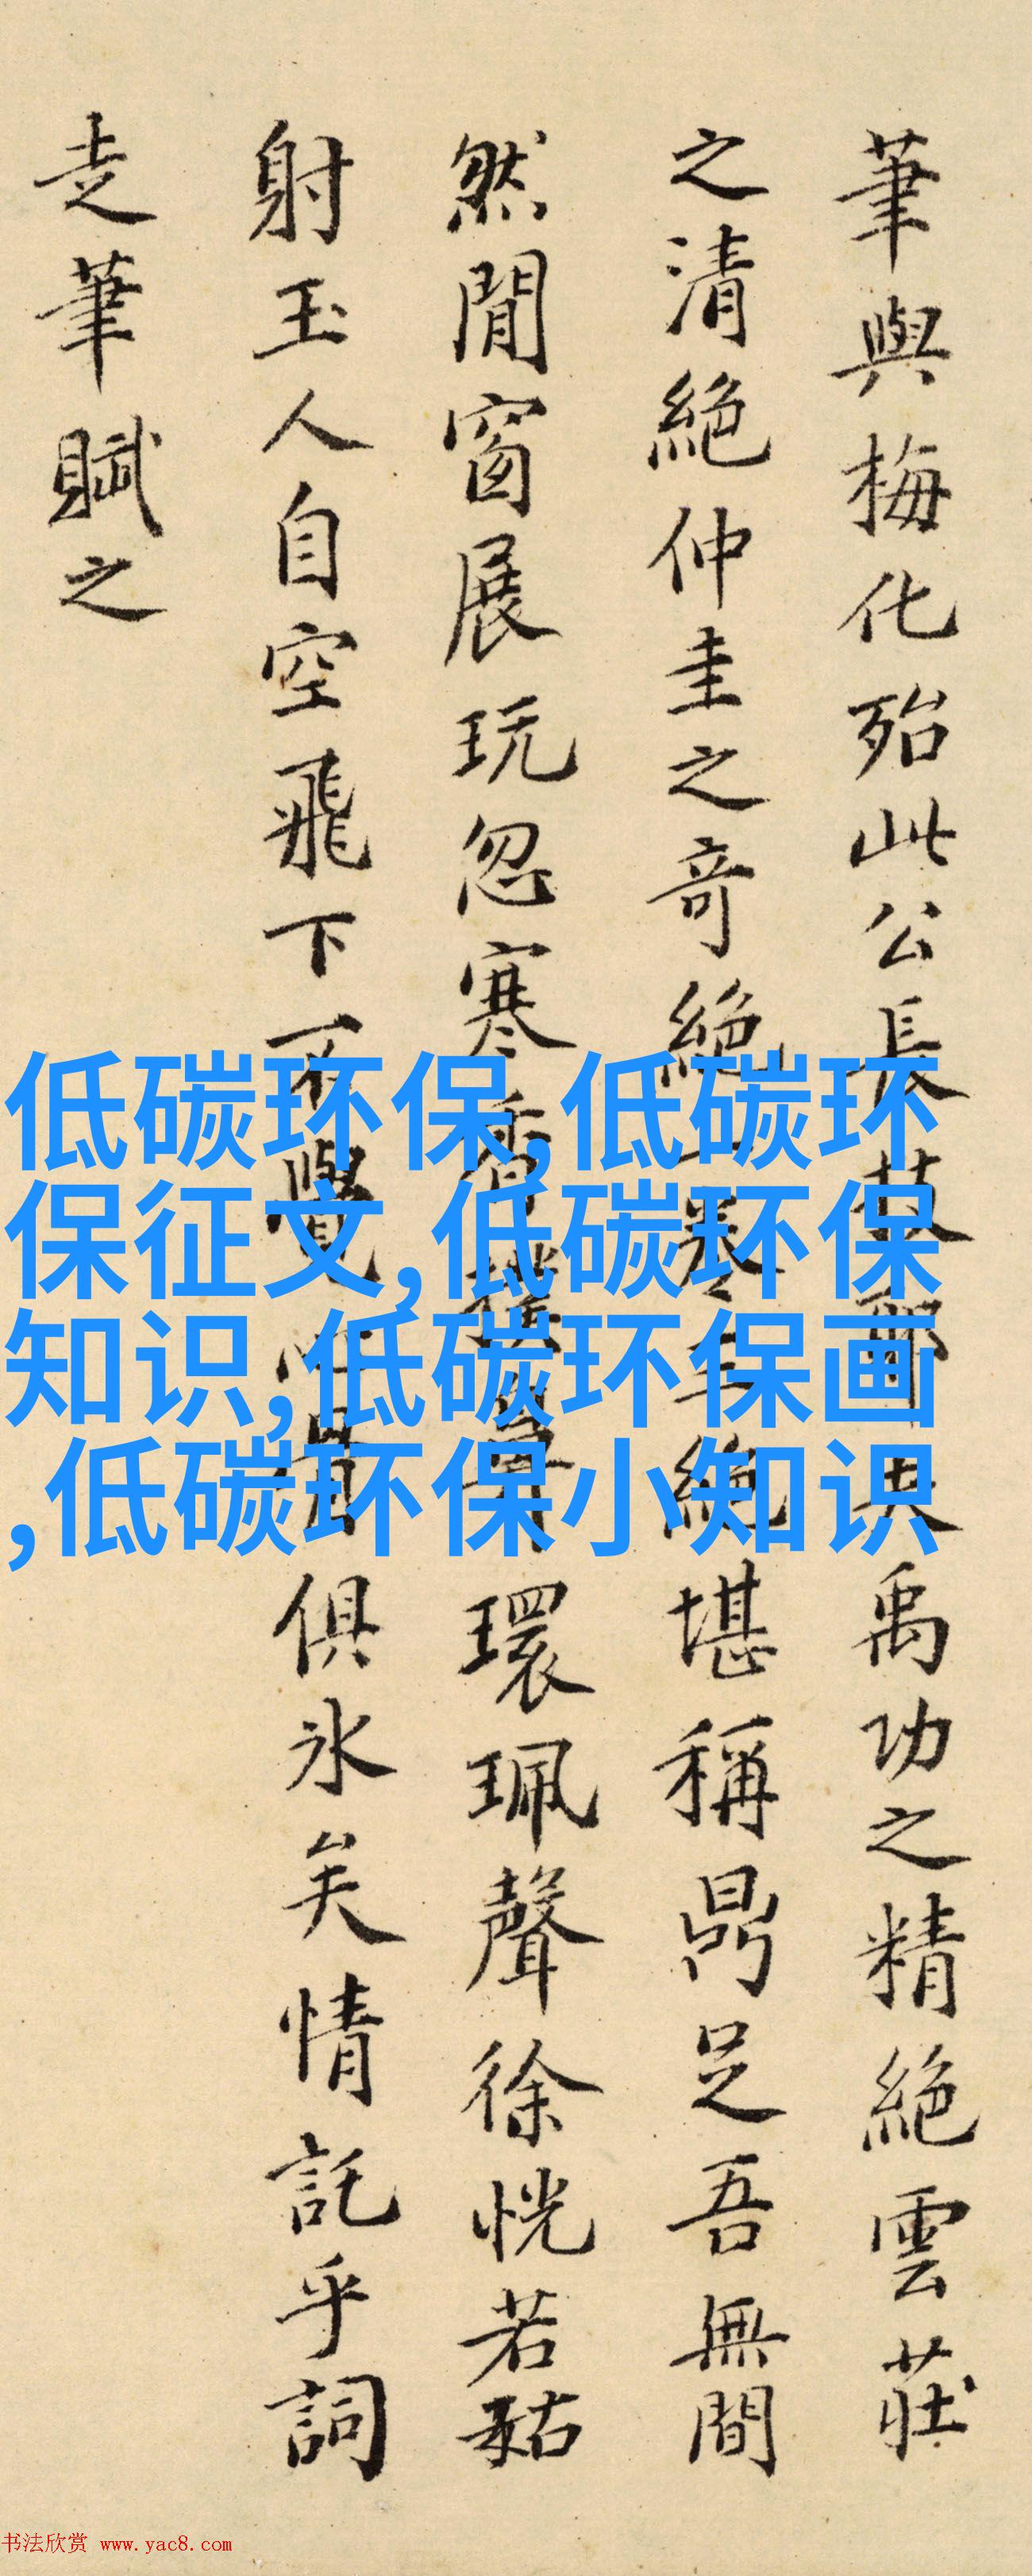 筆與梅化殆此公長技耶夫禹功之精絕雲莊
之清絕仲圭之奇絕卷三絕堪稱鼎足吾無間
然閒窗展玩忽寒香環珮聲徐恍若藐姑
射玉人自空飛下不覺俱氷矣情託乎詞
走筆賦之
低碳环保,低碳环
保征文,低碳环保
知识,低碳环保画
,低碳环保小知识
书法欣赏 www.yac8.com